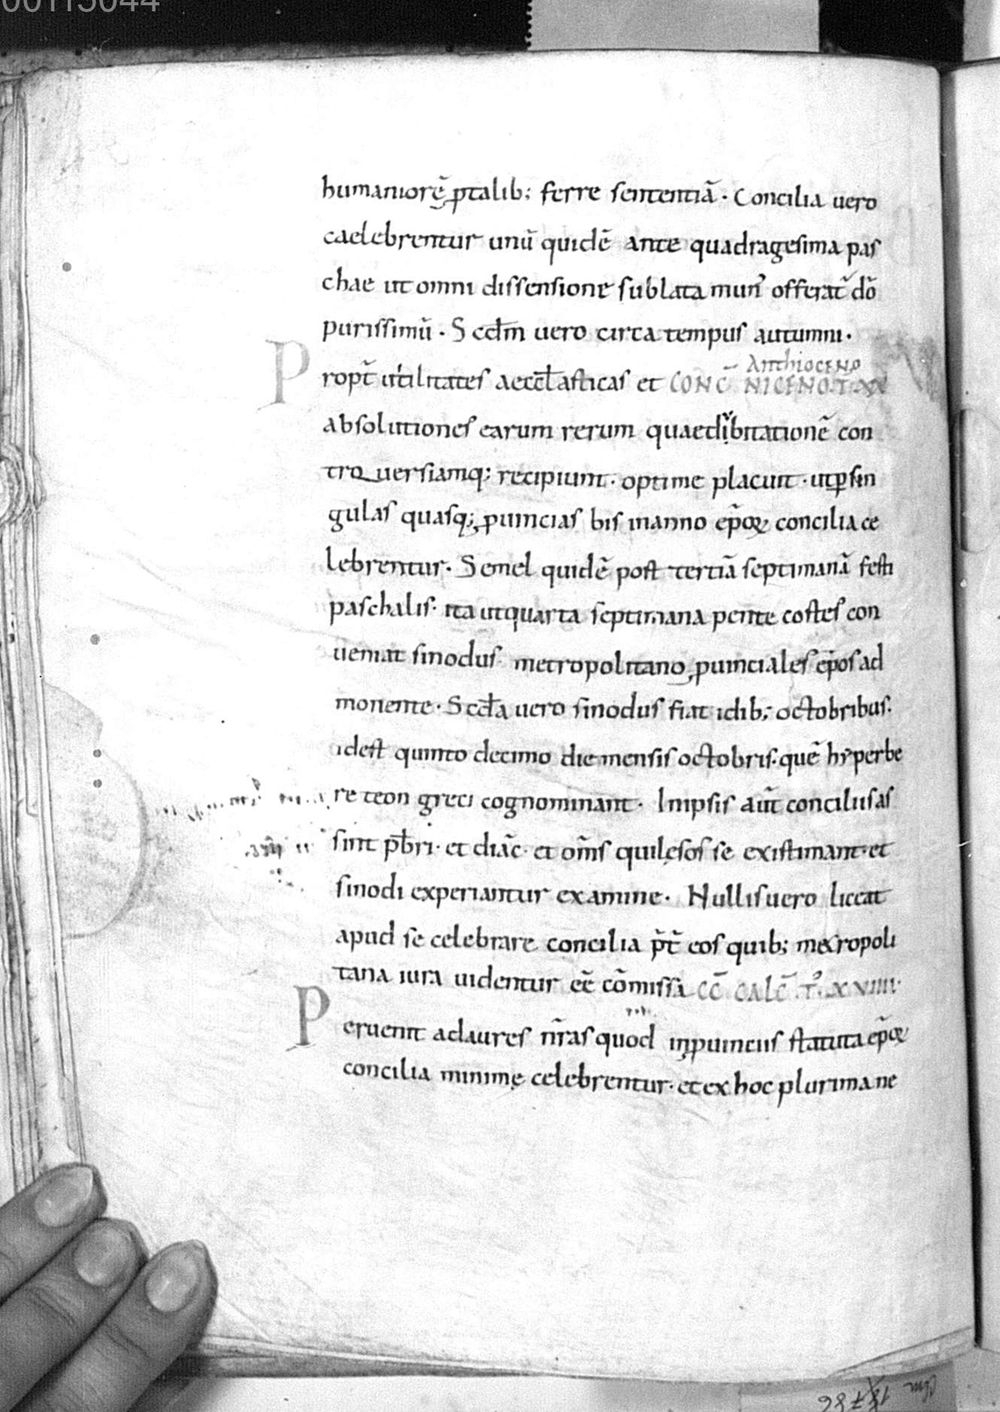 00113044
humaniorē ꝓtalib; ferre sententiā · Concilia uero
caelebrentur unū quidē ante quadragesima pas
chae ut omni dissensione sublata mun᷒ offerat̄ dō
purissimū · Scd̄m uero circa tempus autumni ·
Anthioceno
Propt̄ utilitates aeccl̄asticas et CONC̄ NICENO. T. XX
absolutiones earum rerum quae dubitationē con
trouersiamq; recipiunt · optime placuit · ut ꝑ sin
gulas quasq; ꝓuincias bis in anno ep̄oꝝ concilia ce
lebrentur · Semel quidē post tertiā septimanā festi
paschalis · ita ut quarta septimana pente costes con
ueniat sinodus · metropolitano ꝓuinciales ep̄os ad
monente · Scd̄a uero sinodus fiat idib; octobribus ·
idest quinto decimo die mensis octobris · quē hyperbe
re teon greci cognominant · In ipsis aūt conciliis as
sint p̄bri · et diāc · et om̄s qui lęsos se existimant · et
sinodi experiantur examine · Nullis uero liceat
apud se celebrare concilia p̄t̄ eos quib; metropoli
tana iura uidentur eē cōmissa CC̄ CALC̄ · T̊ · XVIIII ·
Peruenit ad aures nr̄as quod in ꝓuinciis statuta ep̄oꝝ
concilia minime celebrentur · et ex hoc plurima ne
Clm 18786